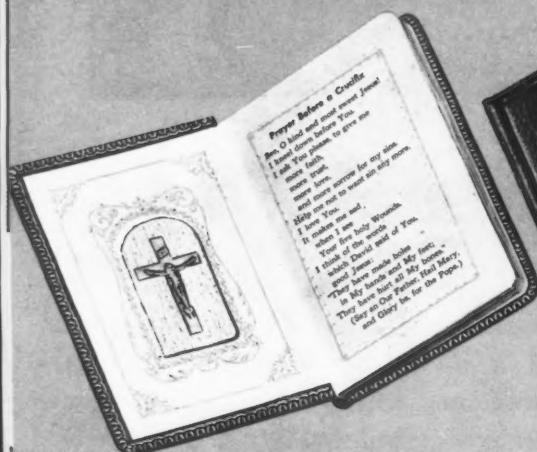 Prayer Before a Crucifix
See, O kind and most sweet Jesus!
I kneel down before You.
I ask You please, to give me
more faith,
more trust,
more love,
and more sorrow for my sins.
Help me not to want sin any more.
I love You.
It makes me sad,
when I see
Your five holy Wounds.
I think of the words
which David said of You,
good Jesus:
"They have made holes
in My hands and My feet;
They have hurt all My bones."
(Say an Our Father, Hail Mary,
and Glory be, for the Pope.)